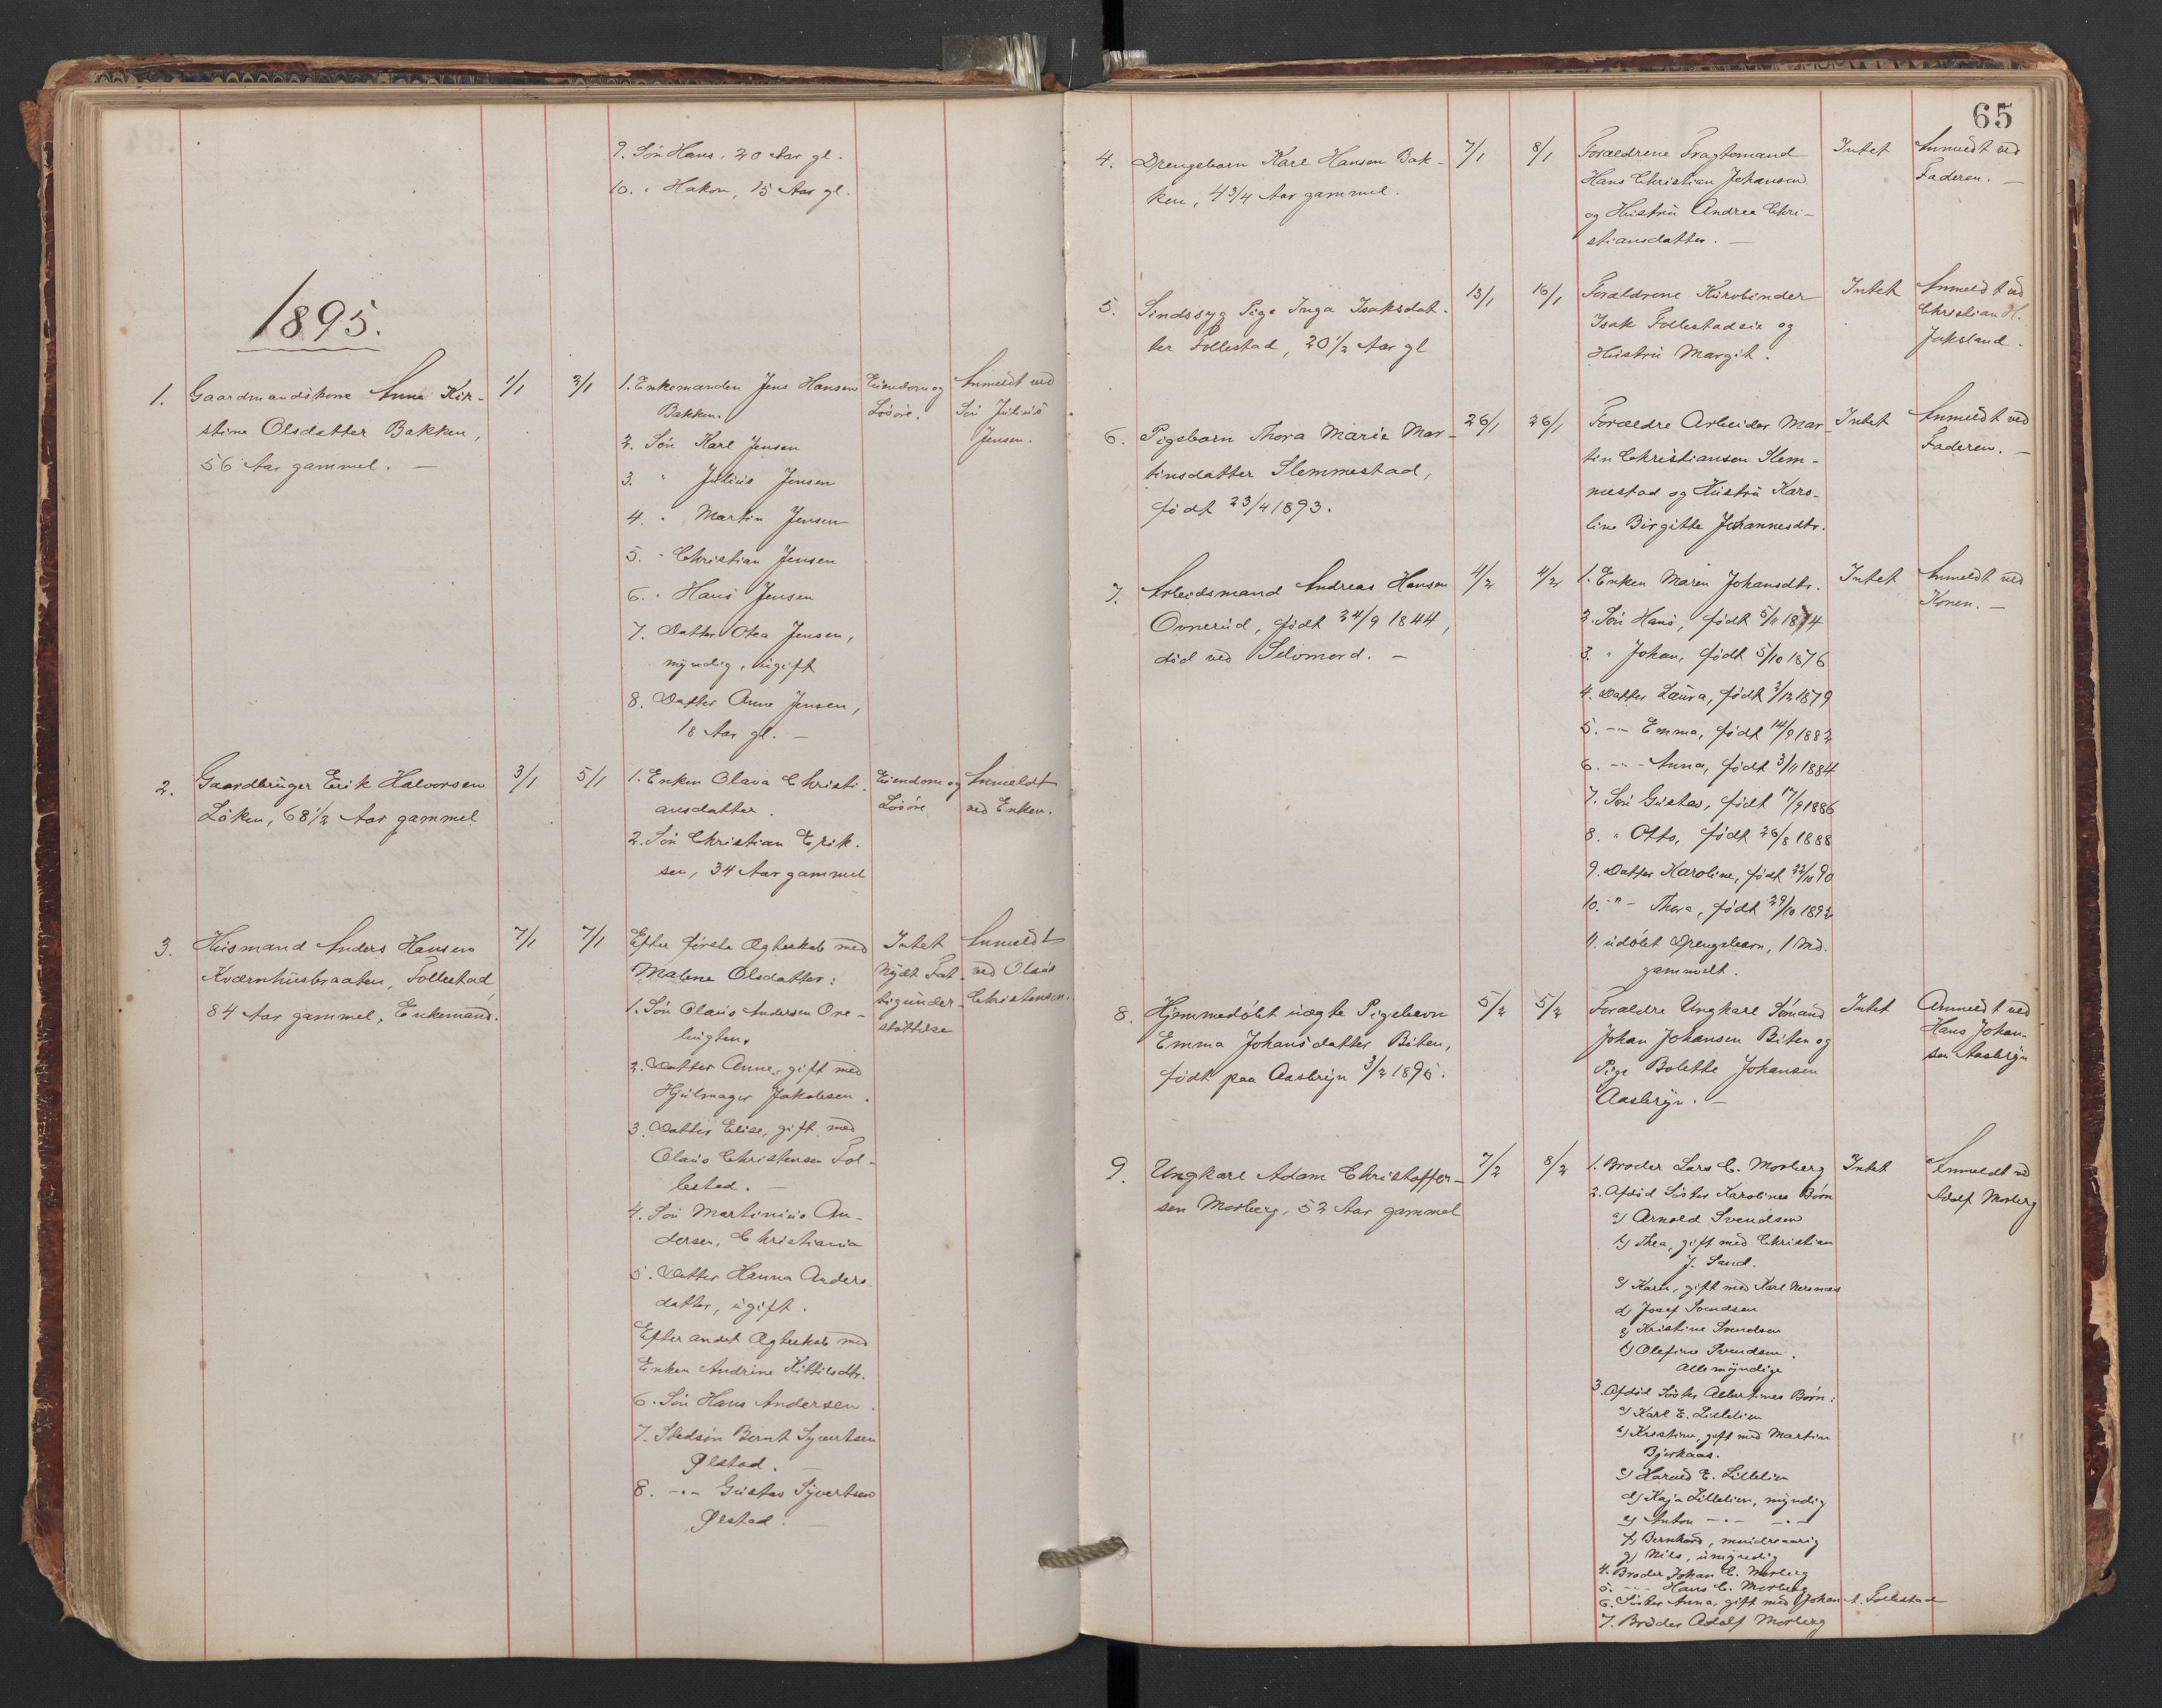 9. Søn Hans, 20 Aar gl.
10. " Hakon, 15 Aar gl.
1895.
1. Gaardmandskone Anne Kir-
stine Olsdatter Bakken,
56 Aar gammel. —
1/1
3/1
1. Enkemanden Jens Hansen
Bakken.
2. Søn Karl Jensen
3. " Julius Jensen
4. " Martin Jensen
5. " Christian Jensen
6. " Hans Jensen
7. Datter Otea Jensen,
myndig, ugift
8. Datter Anne Jensen,
18 Aar gl. —
Eiendom og
Løsøre.
Anmeldt ved
Søn Julius
Jensen.
2. Gaardbruger Erik Halvorsen
Løken, 68 1/2 Aar gammel
3/1
5/1
1. Enken Olava Christi-
ansdatter.
2. Søn Christian Erik-
sen, 34 Aar gammel
Eiendom og
Løsøre
Anmeldt
ved Enken.
3. Husmand Anders Hansen
Kværnhusbraaten, Follestad,
84 Aar gammel, Enkemand.
7/1
7/1
Efter første Ægteskab med
Malene Olsdatter:
1. Søn Olaus Andersen Ove-
2. Datter Anne, gift med
Hjulmager Jakobsen.
3. Datter Elise, gift med
Olaus Christensen Fol-
lestad. —
4. Søn Martinius An-
dersen, Christiania
5. Datter Hanna Anders-
datter, ugift.
Efter andet Ægteskab med
Enken Andrine Kittilsdtr.
6. Søn Hans Andersen.
7. Stedsøn Bernt Syvertsen
Ølstad. —
8. -"- Gustav Syvertsen
Ølstad. —
Intet
Nydt Fat-
tigunder-
støttelse
Anmeldt
ved Olaus
Christensen.
65
4. Drengebarn Karl Hansen Bak-
ken, 4 3/4 Aar gammel.
7/1
8/1
Forældrene Fragtemand
Hans Christian Johansen
og Hustru Andrea Chri-
stiansdatter. —
Intet
Anmeldt ved
Faderen. —
5. Sindssyg Pige Inga Isaksdat-
ter Follestad, 20 1/2 Aar gl
13/1
16/1
Forældrene Kurvbinder
Isak Follestadeie og
Hustru Margit.
Intet
Anmeldt ved
Christian H.
Jaksland.
6. Pigebarn Thora Marie Mar-
tinsdatter Slemmestad,
født 23/4 1893.
26/1
26/1
Forældre Arbeider Mar-
tin Christiansen Slem-
mestad og Hustru Karo-
line Birgitte Johannesdtr.
Intet
Anmeldt ved
Faderen. —
7. Arbeidsmand Andreas Hansen
Ovnerud, født 24/9 1844,
død ved Selvmord. —
4/2
4/2
1. Enken Maren Johansdtr.
2. Søn Hans, født 5/11 1874
3. " Johan, født 5/10 1876
4. Datter Laura, født 3/12 1879
5. -"- Emma, født 14/9 1882
6. -"- Anna, født 3/11 1884
7. Søn Gustav, født 17/9 1886
8. " Otto, født 26/8 1888
9. Datter Karoline, født 22/10 90
10. -"- Thora, født 29/10 1892
11. udøbt Drengebarn, 1 Md.
gammelt.
Intet
Anmeldt ved
Konen. —
8. Hjemmedøbt uægte Pigebarn
Emma Johansdatter Biten,
født paa Aasbryn 3/2 1895.
5/2
5/2
Forældre Ungkarl Sømand
Johan Johansen Biten og
Pige Bolette Johansen
Aasbryn. —
Intet
Anmeldt ved
Hans Johan-
sen Aasbryn
9. Ungkarl Adam Christoffer-
sen Morberg, 52 Aar gammel
7/2
8/2
1. Broder Lars C. Morberg
2. Afdød Søster Karolines Børn
a) Arnold Svendsen
b) Thea, gift med Christian
J. Sand.
c) Karen, gift med Karl Nersnæs
d) Josef Svendsen
e) Kristine Svendsen
f) Olefine Svendsen.
Alle myndige
3. Afdød Søster Albertines Børn:
a) Karl E. Lillelien
b) Kristine, gift med Martin
Bjerkaas.
c) Harald E. Lillelien
d) Kaja Lillelien, myndig
e) Anton -"- -"-
f) Bernhard, mindreaarig
g) Nils, umyndig
4. Broder Johan C. Morberg
5. -"- Hans C. Morberg
6. Søster Anna, gift med Johan A. Follestad
7. Broder Adolf Morberg
Intet
Anmeldt ved
Adolf Morberg